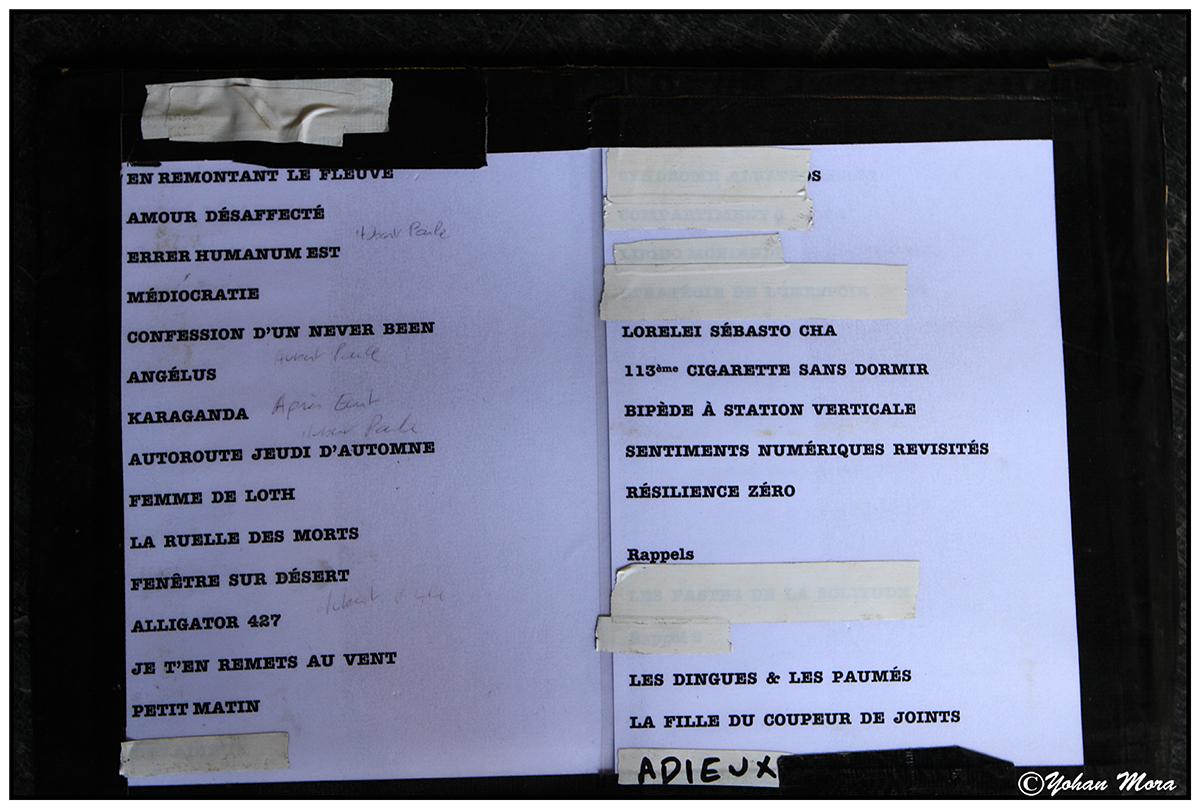 EN REMONTANT LE FLEUVE
AMOUR DÉSAFFECTÉ
Hubert Parle
ERRER HUMANUM EST
MÉDIOCRATIE
CONFESSION D'UN NEVER BEEN
Hubert Parle
ANGÉLUS
KARAGANDA
Hubert Parle
AUTOROUTE JEUDI D'AUTOMNE
FEMME DE LOTH
LA RUELLE DES MORTS
FENÊTRE SUR DÉSERT
ALLIGATOR 427
JE T'EN REMETS AU VENT
PETIT MATIN
COMPARTIMENT
STRATÉGIE DE L'INESPOIR
LORELEI SÉBASTO CHA
113ème CIGARETTE SANS DORMIR
BIPÈDE À STATION VERTICALE
SENTIMENTS NUMÉRIQUES REVISITÉS
RÉSILIENCE ZÉRO
Rappels
LES FASTES DE LA SOLITUDE
Rappels
LES DINGUES & LES PAUMÉS
LA FILLE DU COUPEUR DE JOINTS
ADIEUX
©Yohan Mora